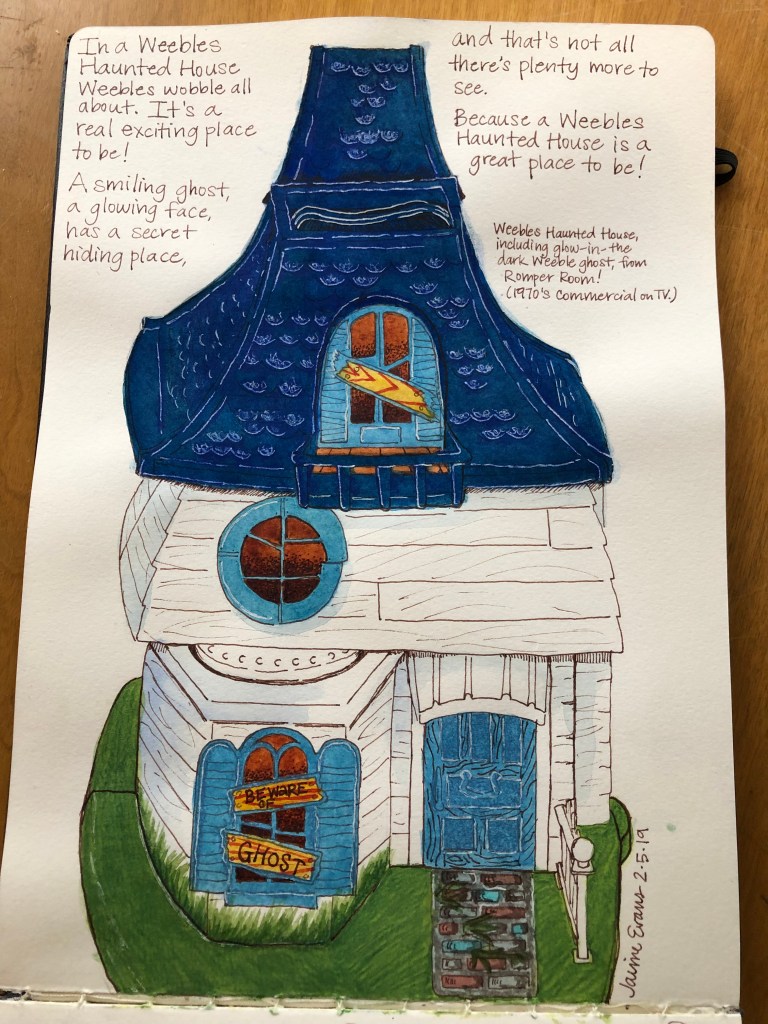 In a Weebles
Haunted House
Weebles wobble all
about. It's a
real exciting place
to be!
A smiling ghost,
a glowing face,
has a secret
hiding place,
and that's not all
there's plenty more to
see.
Because a Weebles
Haunted House is a
great place to be!
Weebles Haunted House,
including glow-in-the
dark Weeble ghost, from
Romper Room!
(1970's Commercial on TV.)
BEWARE
OF
GHOST
Jaime Evans 2.5.19